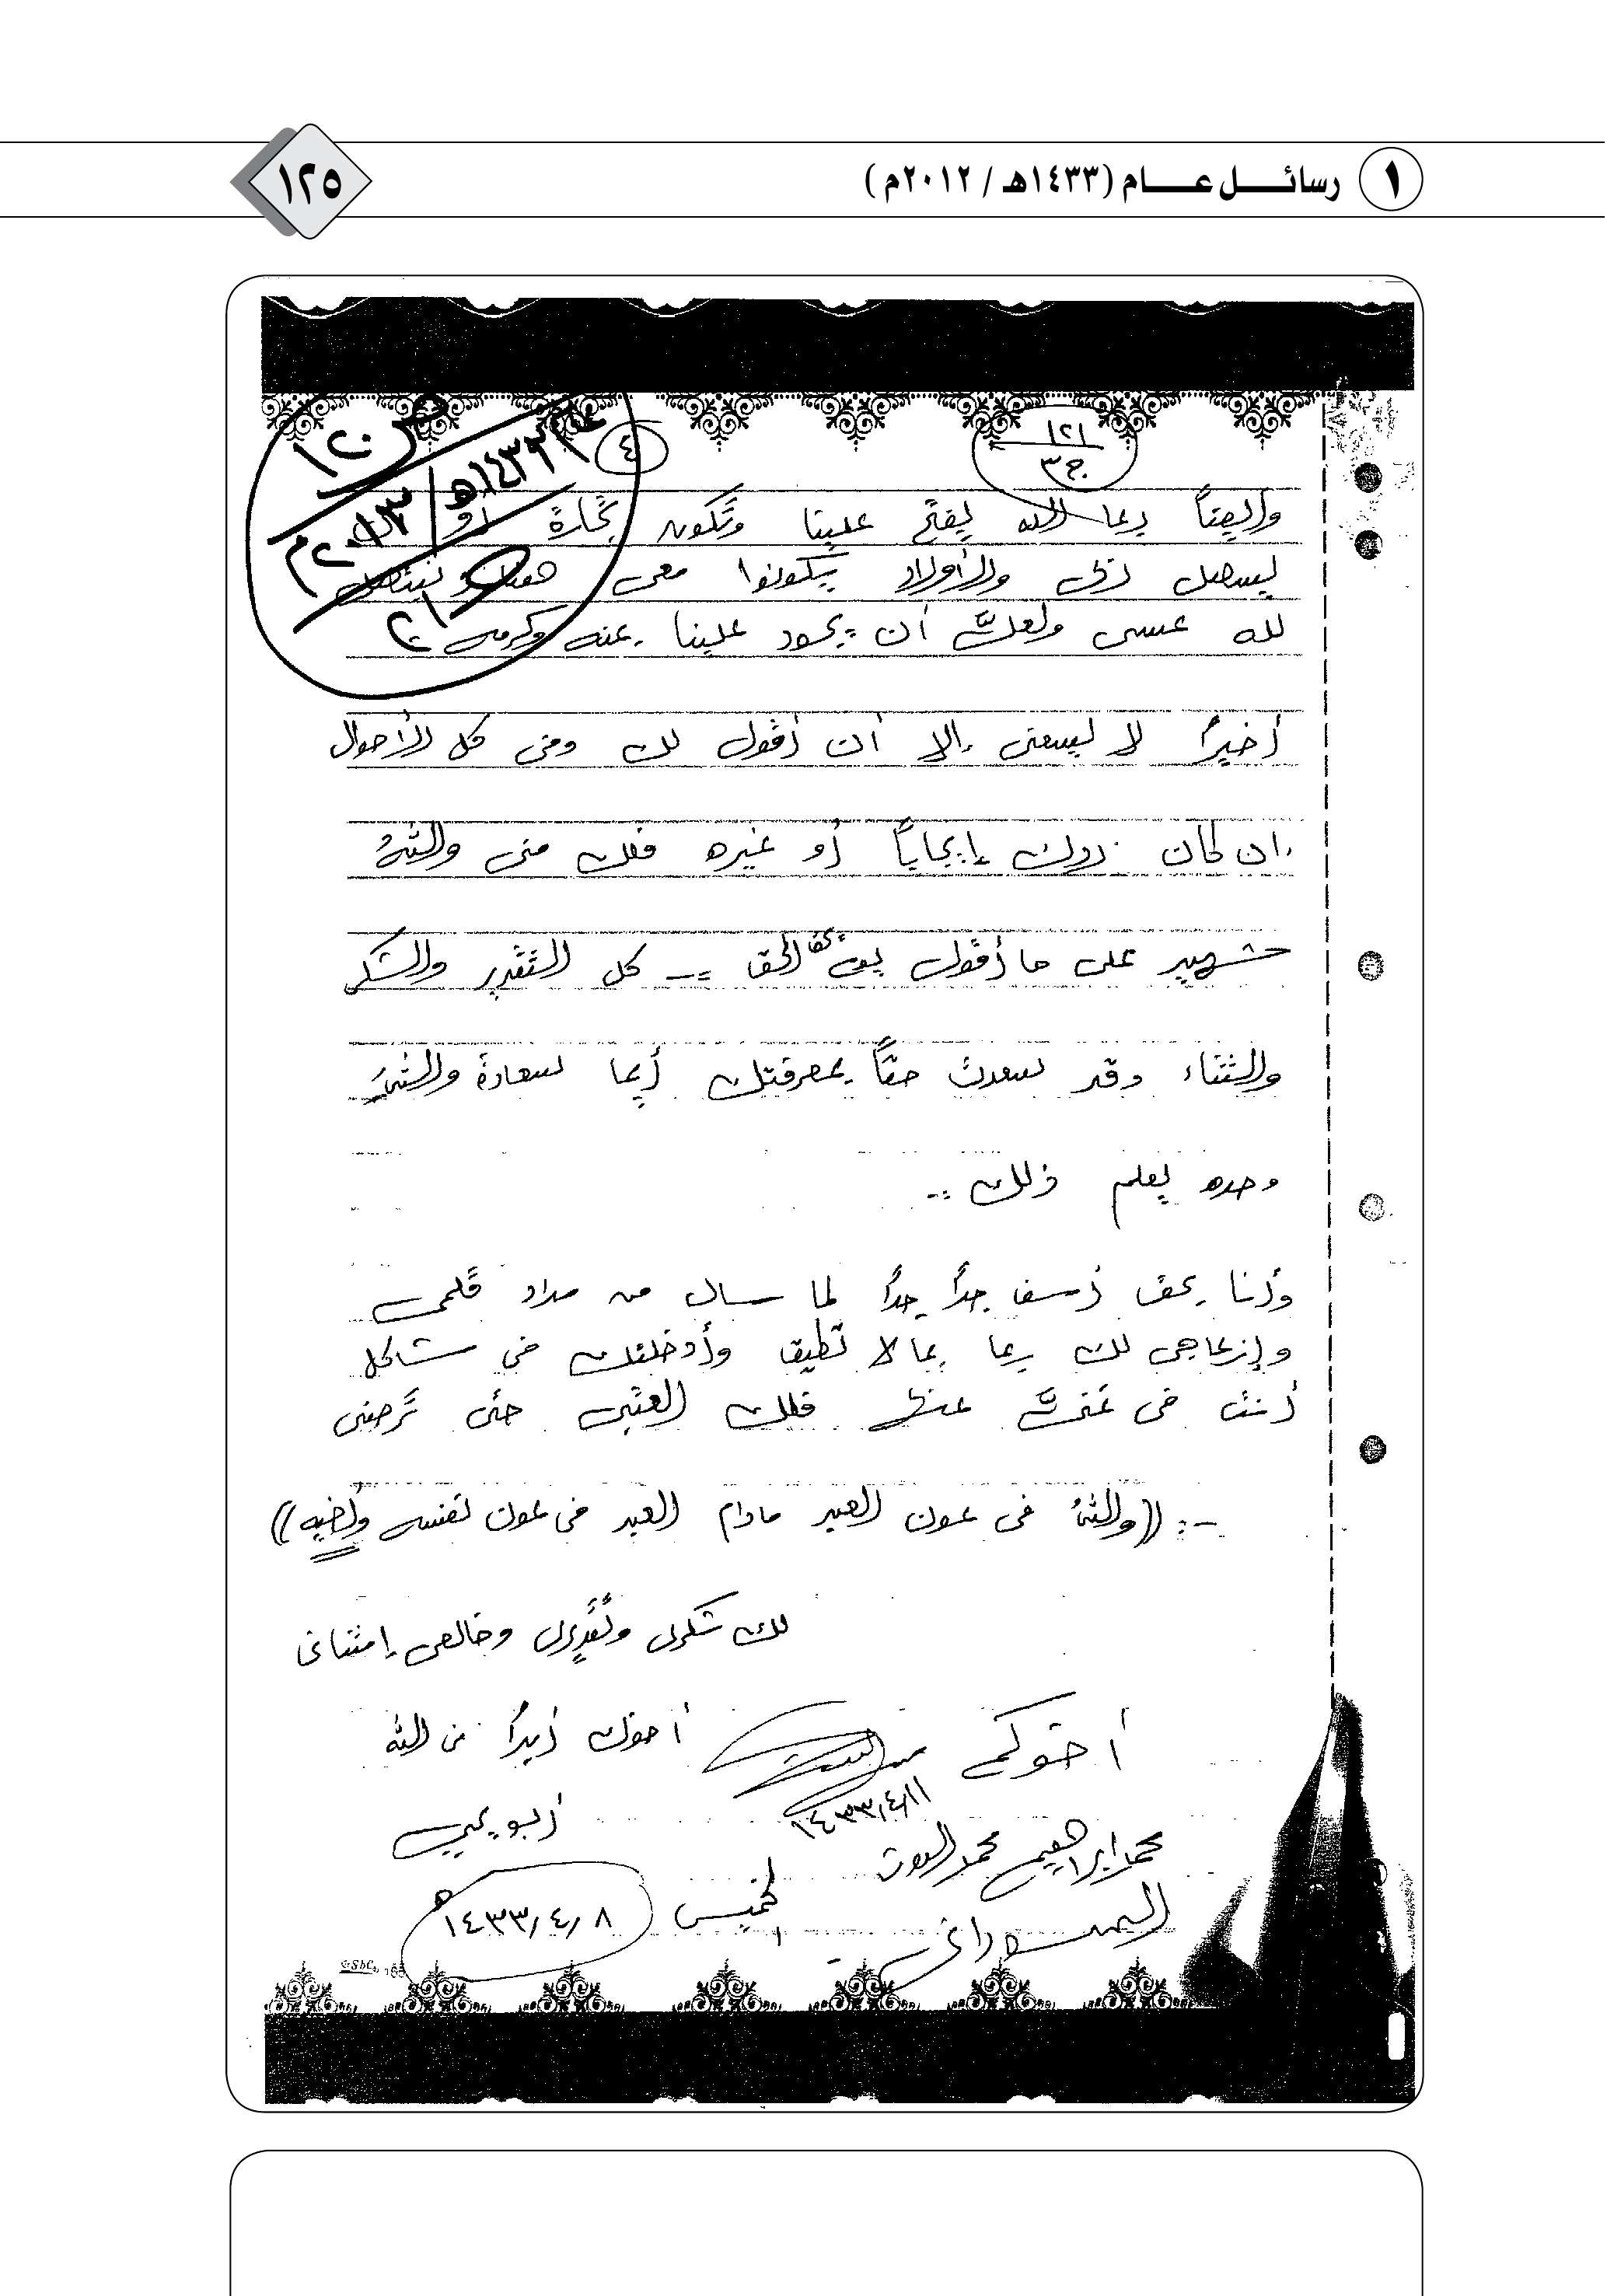 ١ رسائل عام (١٤٣٣هـ / ٢٠١٢م)
١٢٥
ص ١٢٠
١٤٣٣هـ
٢٠١٣م
٢١
٤
١٢١
ج٣
وأيضاً ربما الله يفتح علينا وتكون تجارة أو
ليسهل والأولاد يكونوا معي هناك
لله عسى ولعل أن يجود علينا بمنه وكرمه
أخيراً لا يسعني إلا أن أقول لك وفي كل الأحوال
إن كان ردك إيجاباً أو غيره فلك مني والله
شهيد على ما أقول بحق الحق -- كل التقدير والشكر
والثناء وقد سعدت حقاً بمعرفتك أيما سعادة والله
وحده يعلم ذلك ..
وأنا بحق أسف جداً جداً لما سال من مداد قلمي
وإزعاجي لك ربما بما لا تطيق وأدخلتك في مشاكل
أنت في غنى عنها فلك العتبى حتى ترضى
-: ((والله في عون العبد مادام العبد في عون نفسه وأخيه))
لك شكري وتقديري وخالص إمتناني
أخوكم
أخوك أبداً في الله
١٤٣٣/٤/١١
أبو يحيى
محمد ابراهيم محمد
السوداني
الخميس ١٤٣٣/٤/٨هـ